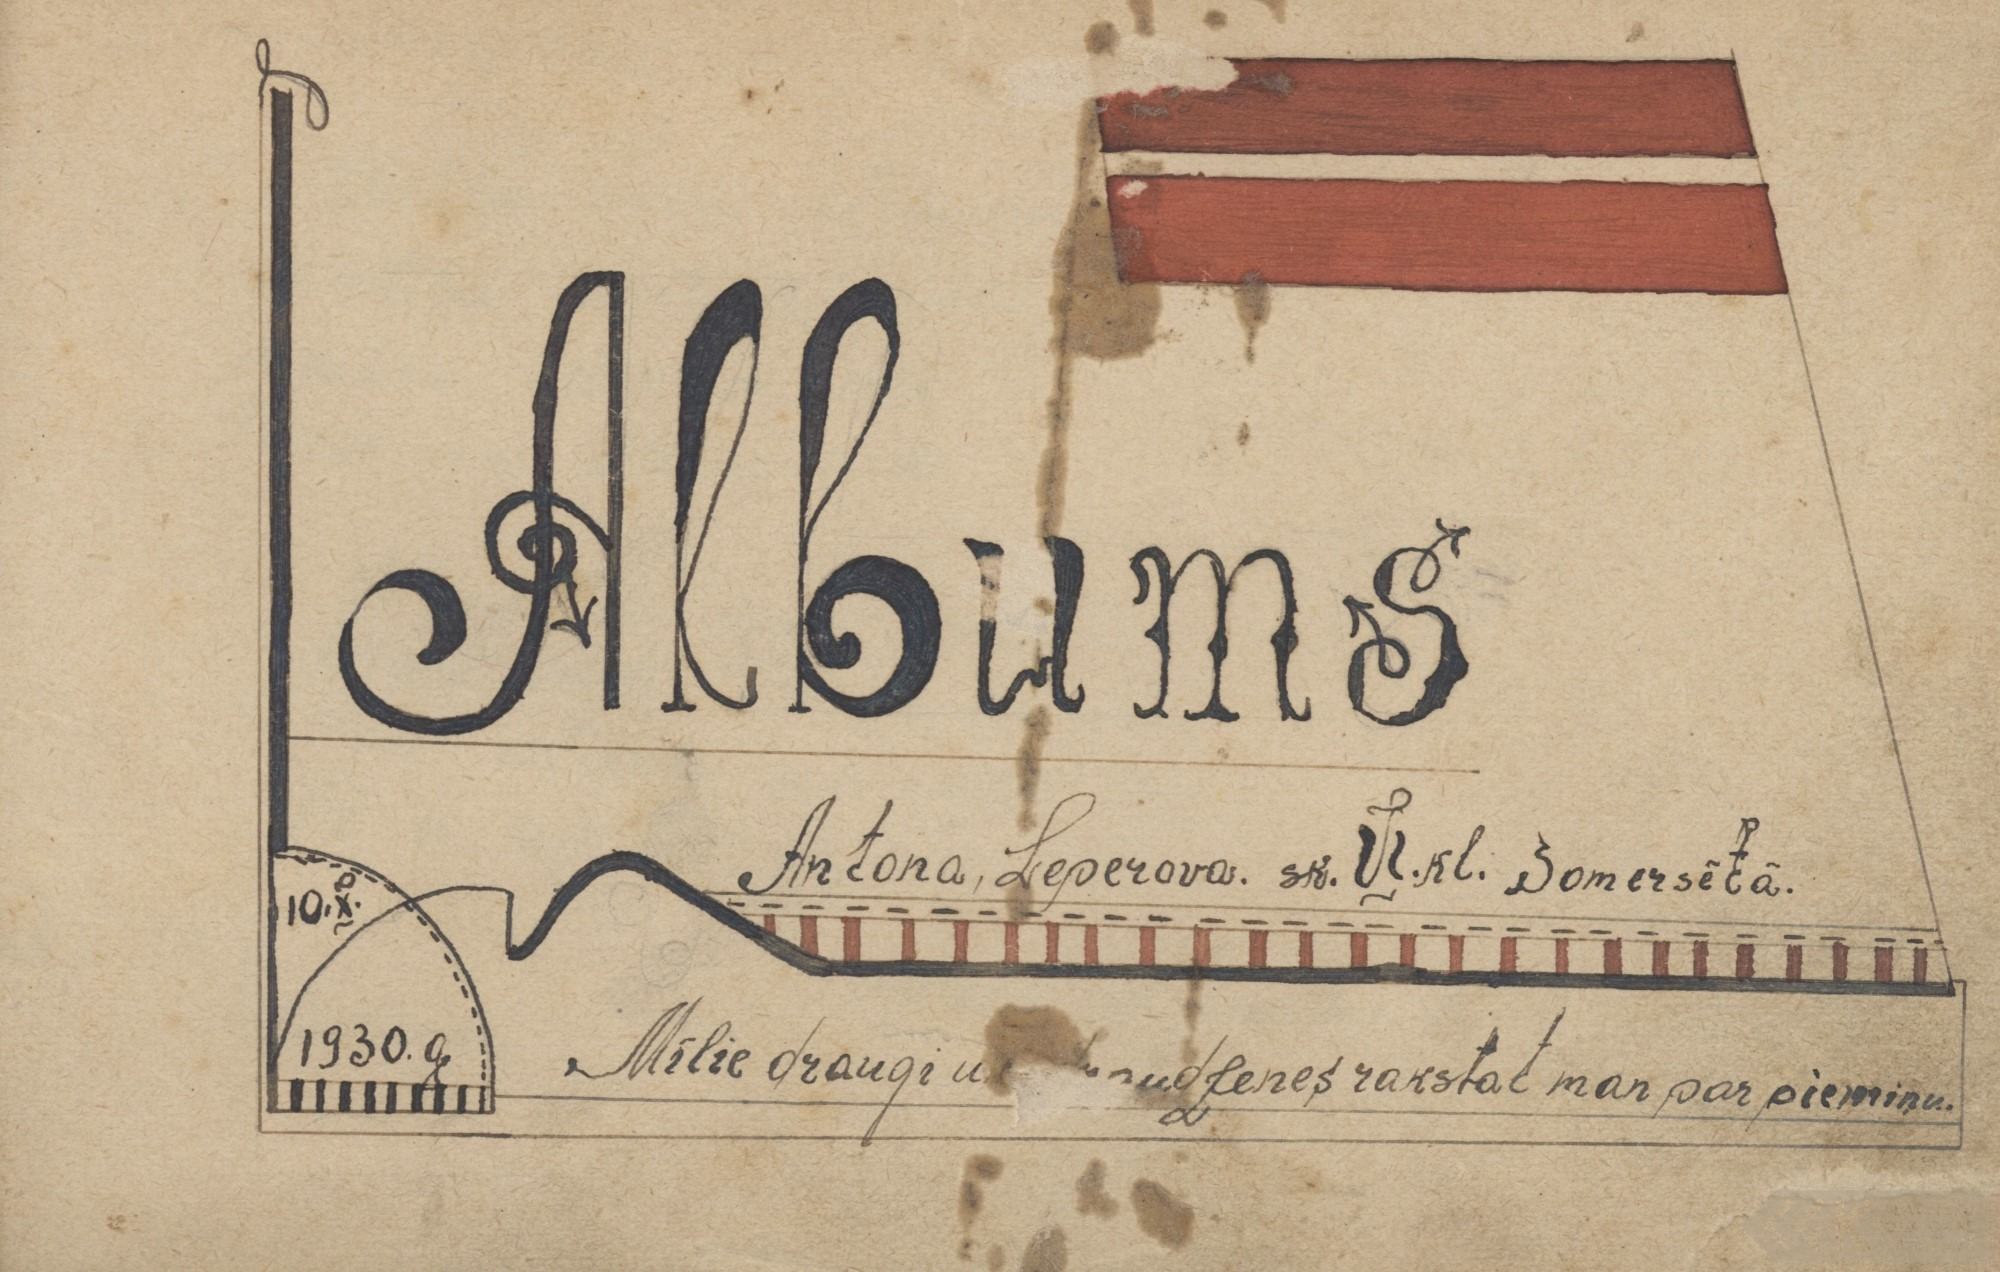 Albums
Antona, Leperova. sk. VI.kl. Somersētā.
10.X.
1930.g
Mīlie draugi draudzenes rakstat man par piemiņu.